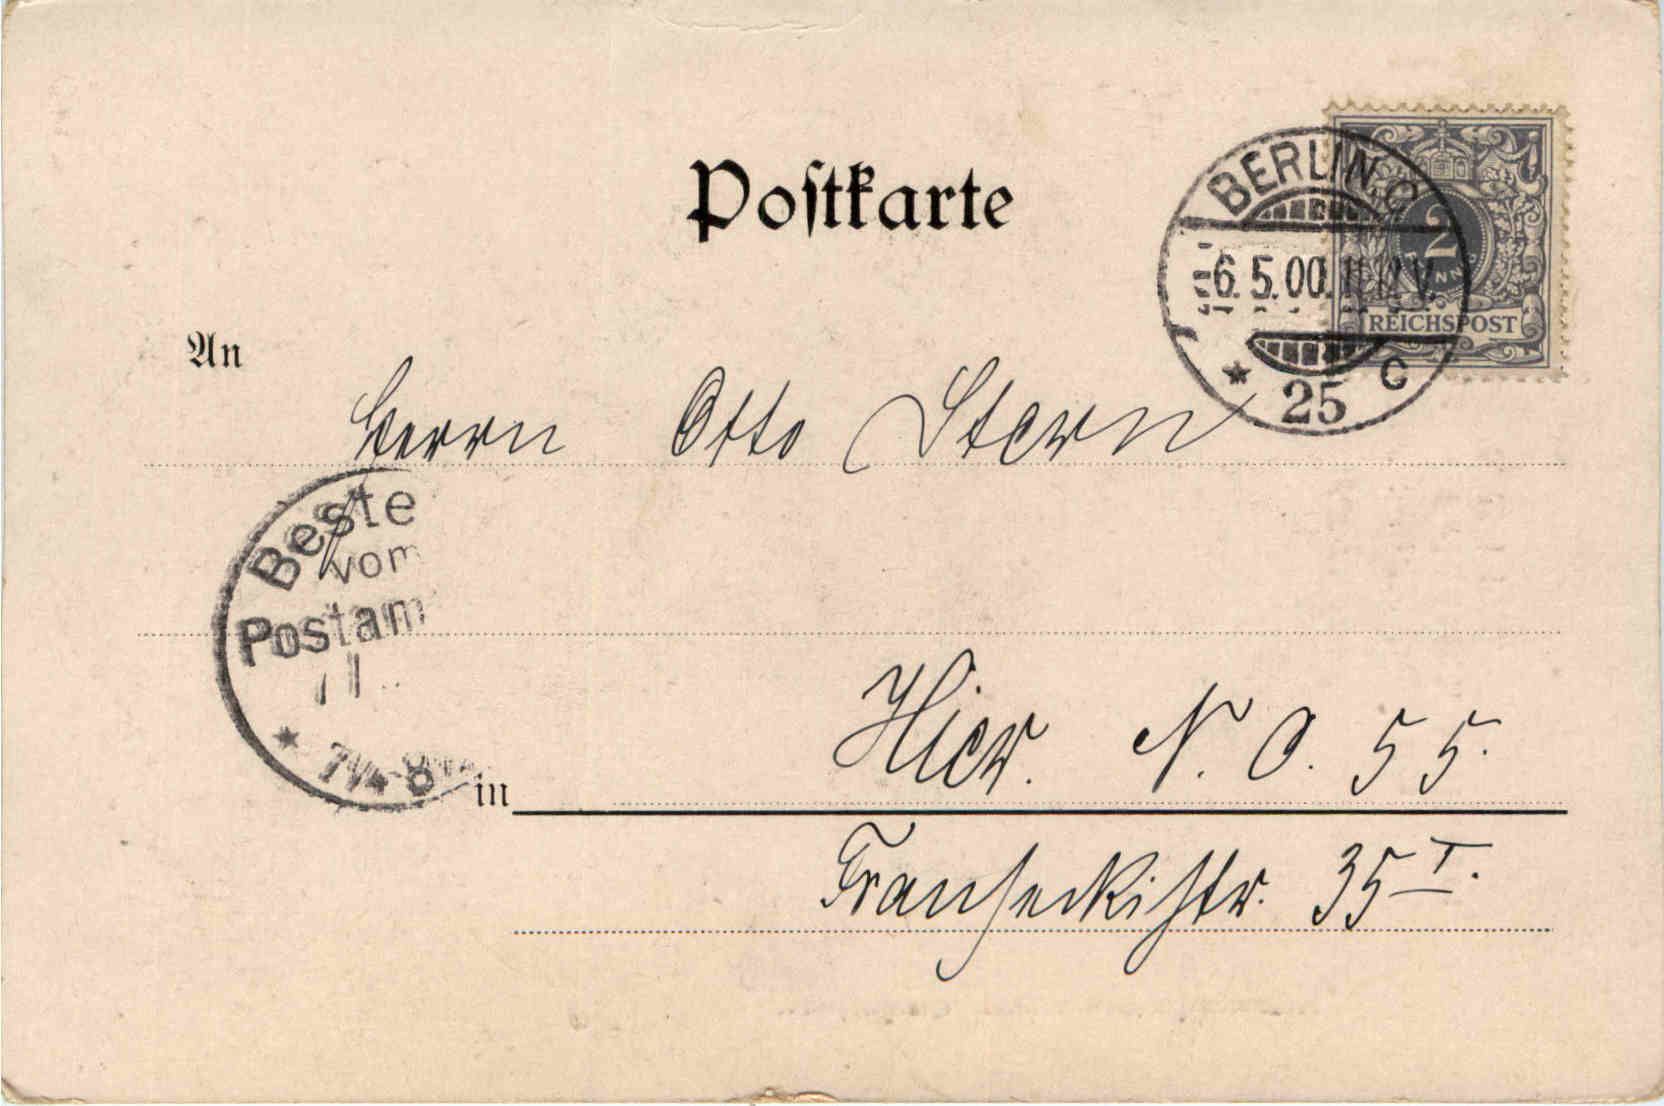 Postkarte
BERLIN. C.
2
REICHSPOST
6. 5. 00. 11-12 V.
* 25 C
An
Herrn Otto Stern
Beste
vom
Postam
Hier. N. O. 55.
in
Franseckistr. 35 I.